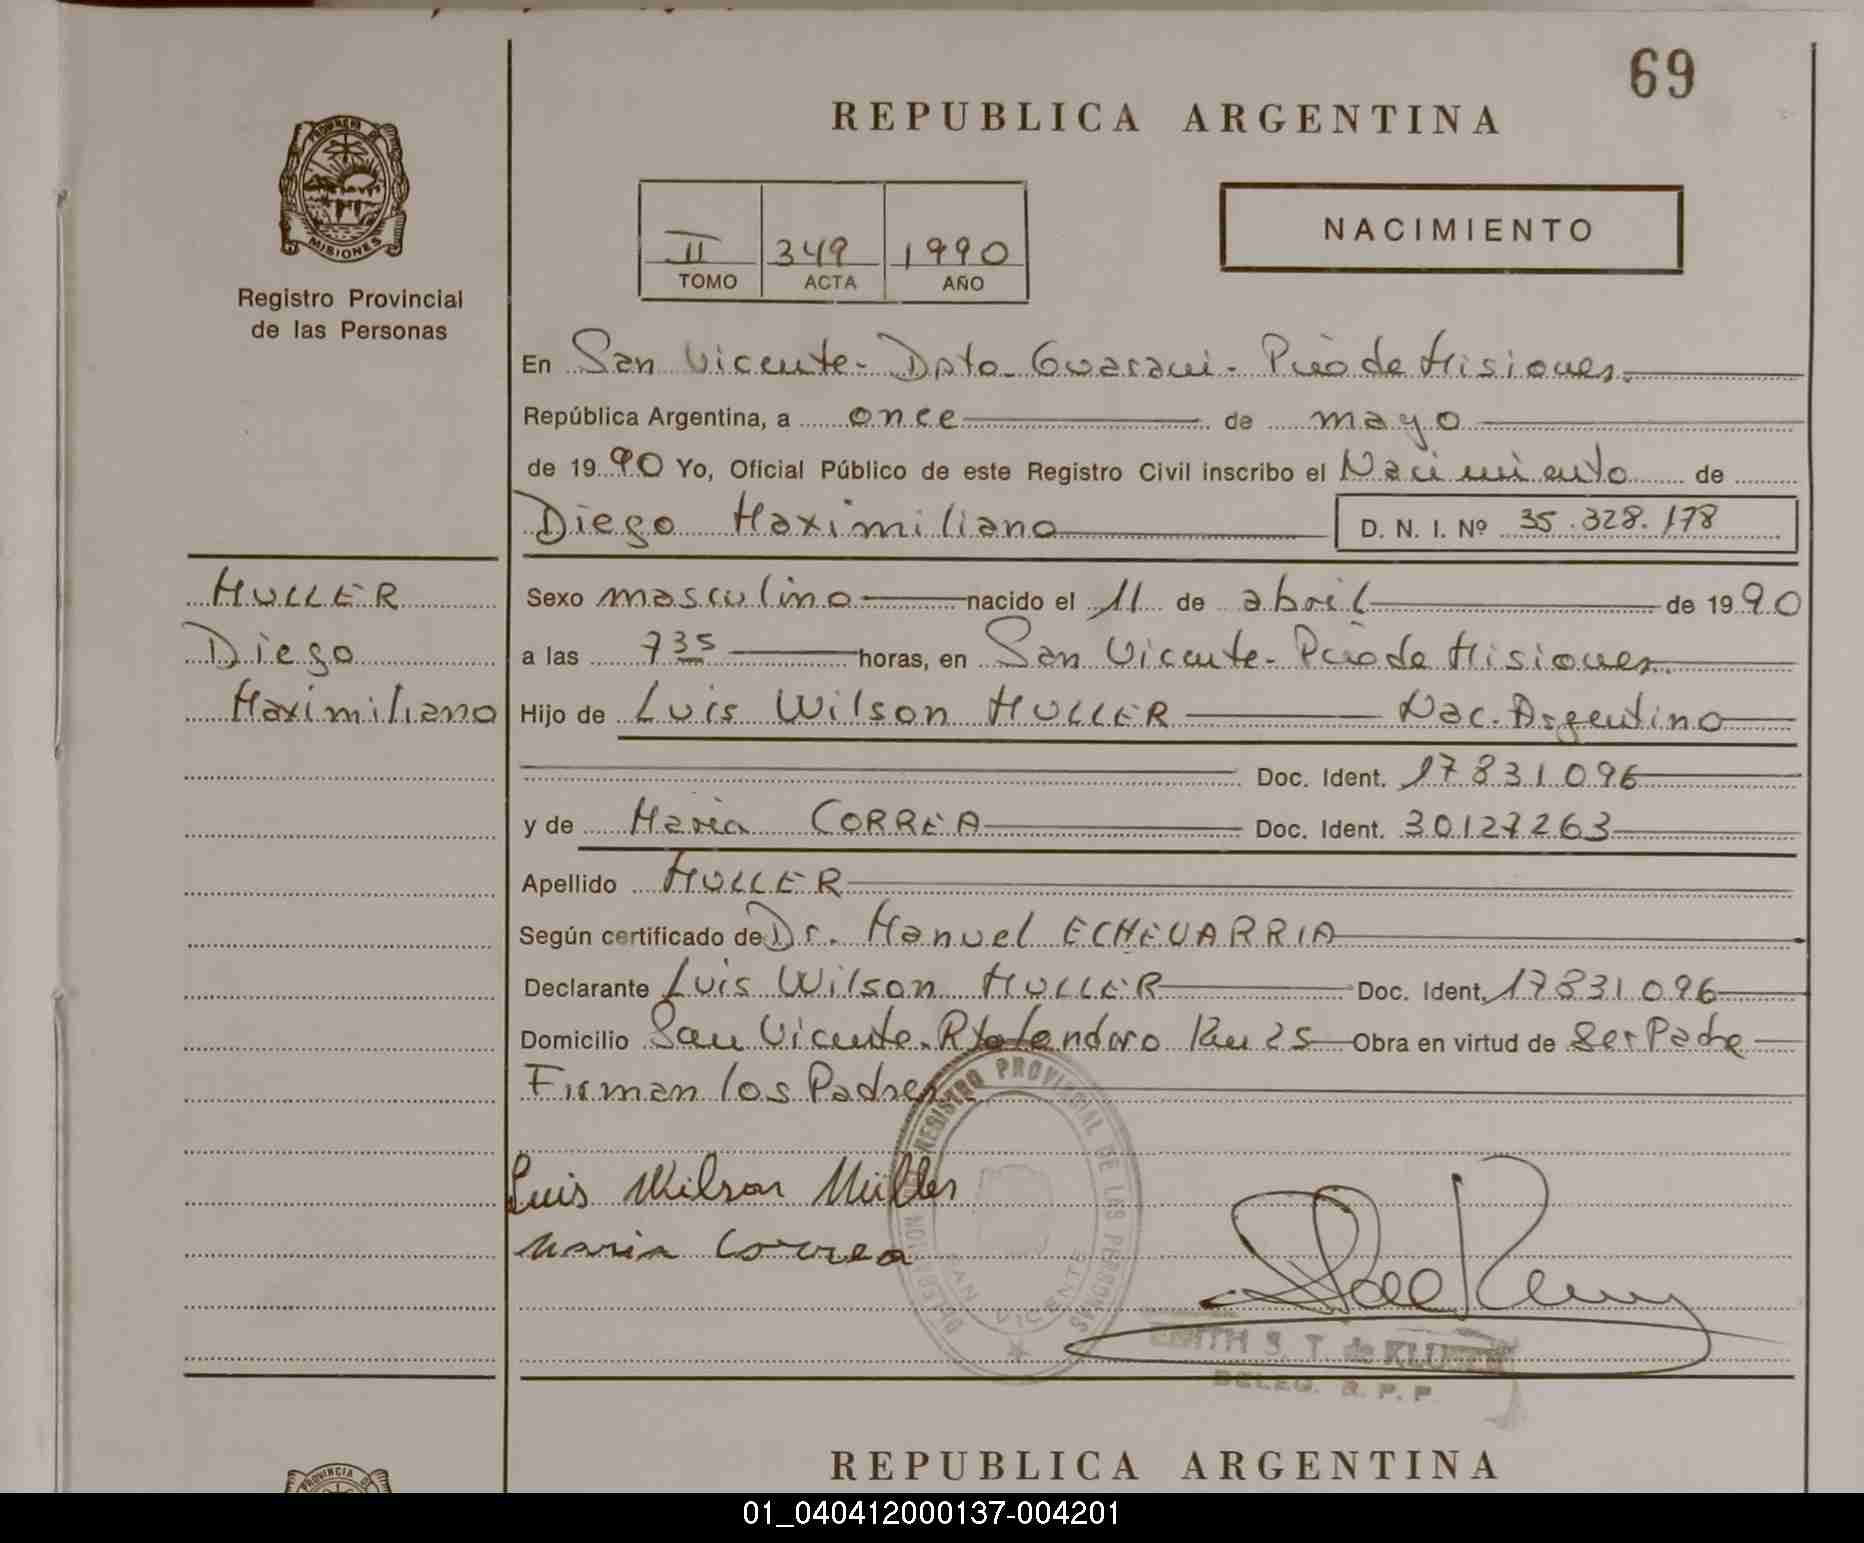 69
REPUBLICA ARGENTINA
PROVINCIA DE
MISIONES
Registro Provincial
de las Personas
II 349 1990
TOMO ACTA AÑO
NACIMIENTO
En San Vicente - Dpto Guarani - Pcia de Misiones.
República Argentina, a once de mayo
de 1990 Yo, Oficial Público de este Registro Civil inscribo el Nacimiento de
Diego Maximiliano D. N. I. Nº 35.328.178
MULLER
Diego
Maximiliano
Sexo masculino nacido el 11 de abril de 1990
a las 7 35 horas, en San Vicente - Pcia de Misiones.
Hijo de Luis Wilson MULLER Nac. Argentino
Doc. Ident. 17831096
y de Maria CORREA Doc. Ident. 30127263
Apellido MULLER
Según certificado de Dr. Manuel ECHEVARRIA
Declarante Luis Wilson MULLER Doc. Ident. 17831096
Domicilio San Vicente - Rta Km 25 Obra en virtud de Ser Padre
Firman los Padres
Luis Wilson Müller
Maria Correa
REGISTRO PROVINCIAL DE LAS PERSONAS
SAN VICENTE
EDITH S. T. de
DELEG. R. P. P
REPUBLICA ARGENTINA
PROVINCIA DE
01_040412000137-004201